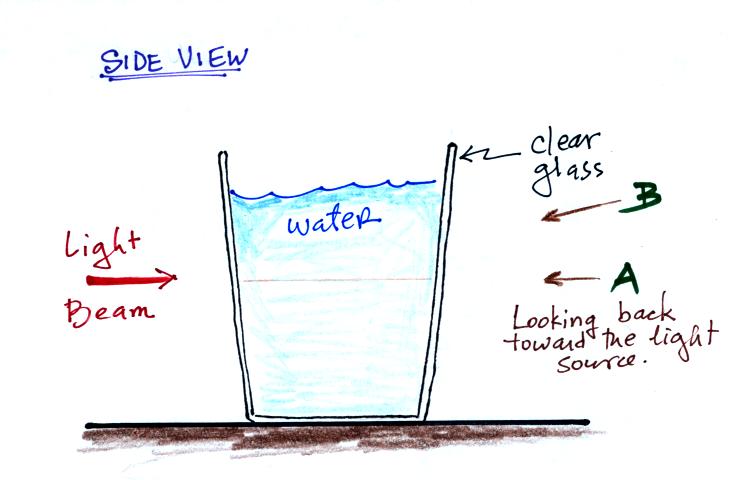 SIDE VIEW
clear
glass
B
water
Light
Beam
A
Looking back
toward the light
source.